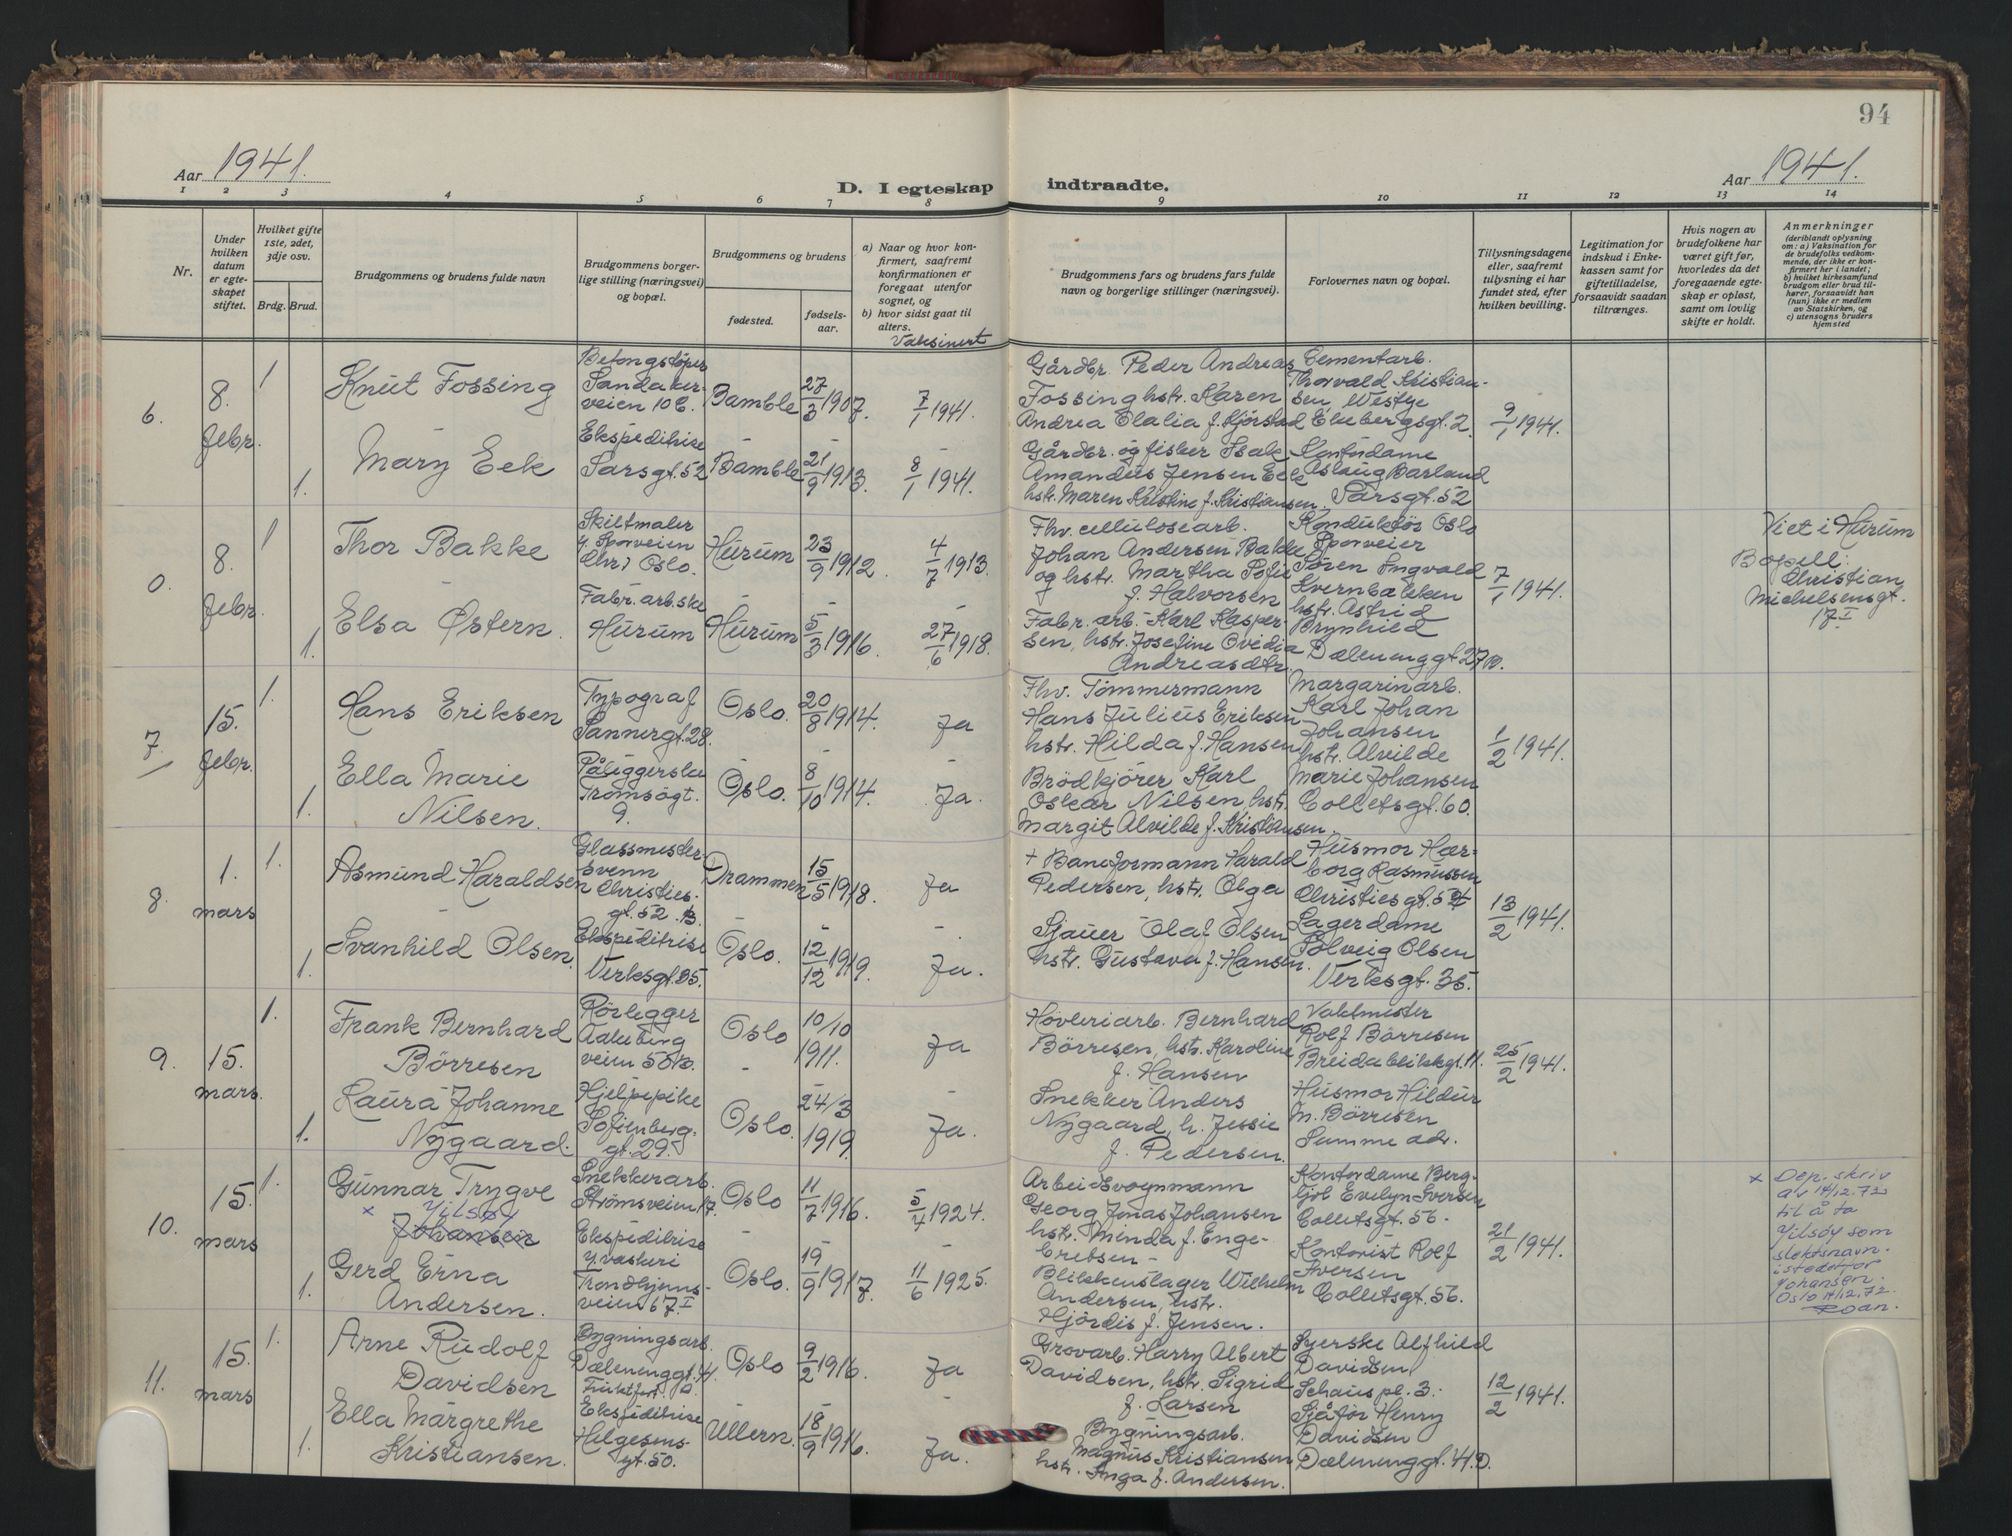 94
Aar 1941.
D. I egteskap
indtraadte.
Aar 1941.
1 2 3 4 5 6 7 8 9 10 11 12 13 14
Nr.
Under
hvilken
datum
er egte-
skapet
stiftet.
Hvilket gifte
1ste, 2det,
3dje osv.
Brdg. Brud.
Brudgommens og brudens fulde navn
Brudgommens borger-
lige stilling (næringsvei)
og bopæl.
Brudgommens og brudens
fødested.
fødsels-
aar.
a) Naar og hvor kon-
firmert, saafremt
konfirmationen er
foregaat utenfor
sognet, og
b) hvor sidst gaat til
alters.
Vaksinert
Brudgommens fars og brudens fars fulde
navn og borgerlige stillinger (næringsvei).
Forlovernes navn og bopæl.
Tillysningsdagene
eller, saafremt
tillysning ei har
fundet sted, efter
hvilken bevilling.
Legitimation for
indskud i Enke-
kassen samt for
giftetilladelse,
forsaavidt saadan
tiltrænges.
Hvis nogen av
brudefolkene har
været gift før,
hvorledes da det
foregaaende egte-
skap er opløst,
samt om lovlig
skifte er holdt.
Anmerkninger
(deriblandt oplysning
om: a) Vaksination for
de brudefolks vedkom-
mende, der ikke er kon-
firmert her i landet;
b) hvilket kirkesamfund
brudgom eller brud til-
hører, forsaavidt han
(hun) ikke er medlem
av Statskirken, og
c) utensogns bruders
hjemsted
6.
8.
febr.
1
Knut Fossing
Betongstøper
Sandaker-
veien 10 C.
Bamble
27/3 1907.
7/1 1941.
Gårdbr. Peder Andreas
Fossing hstr. Karen
Andrea Elalia f. Kjørstad
Cementarb.
Thorvald Kristian-
sen Westye
Ekebergsgt. 2.
9/1 1941.
1.
Mary Eek
Ekspeditrise
Sarsgt. 52
Bamble
21/9 1913.
8/1 1941.
Gårdbr. og fisker Isak
Amandus Jensen Eek
hstr. Maren Kristine f. Kristiansen
Kontordame
Aslaug Barland
Sarsgt. 52
0.
8.
febr.
1
Thor Bakke
Skiltmaler
v. Sporveien
Chr. Oslo.
Hurum
23/9 1912.
4/7 1913.
Fhv. cellulosearb.
Johan Andersen Bakke
og hstr. Martha Sofie
f. Halvorsen
Konduktør Oslo
Sporveier
Søren Ingvald
Kvernbakken
hstr. Astrid
Brynhild
Dælenenggt. 27 B.
7/1 1941.
Viet i Hurum
Bopell:
Christian
Michelsensgt.
17 I
1.
Elsa Østern.
Fabr. arb. ske
Hurum
Hurum
5/3 1916.
27/6 1918.
Fabr. arb. Karl Kasper-
sen, hstr. Josefine Ovedia
Andreasdtr.
7
15.
febr.
1.
Hans Eriksen
Typograf
Sannergt. 28.
Oslo.
20/8 1914.
Ja
Fhv. Tømmermann
Hans Julius Eriksen
hstr. Hilda f. Hansen
Margarinarb.
Karl Johan
Johansen
hstr. Alvilde
Marie Johansen
Colletsgt. 60.
1/2 1941.
1.
Ella Marie
Nilsen.
Påliggerske
Tromsøgt.
9.
Oslo.
8/10 1914.
Ja.
Brødkjører Karl
Oskar Nilsen, hstr.
Margit Alvilde f. Kristiansen.
8.
1.
mars
1.
Asmund Haraldsen
Glassmester-
svenn
Christies-
gt. 52 B.
Drammen
15/5 1918.
Ja
+ Baneformann Harald
Pedersen, hstr. Olga
Husmor Hær-
borg Rasmussen
Christiesgt. 52
13/2 1941.
1.
Svanhild Olsen.
Ekspeditrise
Verksgt. 35.
Oslo.
12/12 1919.
Ja.
Sjauer Olaf Olsen
hstr. Gustava f. Hansen.
Lagerdame
Solveig Olsen
Verksgt. 35.
9.
15.
mars.
1.
Frank Bernhard
Børresen
Rørlegger
Aakeberg
veien 50 B.
Oslo
10/10
1911.
Ja
Høvleriarb. Bernhard
Børresen, hstr. Karoline
f. Hansen
Vaktmester
Rolf Børresen
Breidablikkgt. 11.
25/2 1941.
1.
Laura Johanne
Nygaard.
Hjelpepike
Sofienberg-
gt. 29.
Oslo.
24/3
1919.
Ja.
Snekker Anders
Nygaard, h. Jessie
f. Pedersen.
Husmor Hildur
M. Børresen
Samme adr.
10.
15.
mars
1.
Gunnar Trygve
x Yilsøy
Johansen
Snekkerarb.
Strømsveien 17.
Oslo
11/7 1916.
5/4 1924.
Arbeidsvognmann
Georg Jonas Johansen
hstr. Minda f. Enge-
bretsen -
Kontordame Berg-
ljot Evelyn Iversen
Colletsgt. 56.
Kontorist Rolf
Iversen
Colletsgt. 56.
21/2 1941.
x Dep. skriv
av 14/12.72
til å ta
Yilsøy som
slektsnavn
istedetfor
Johansen.
Oslo 14/12.72.
Roan.
1.
Gerd Erna
Andersen.
Ekspeditrise
v. vaskeri
Trondhjems-
veien 67 I
Oslo.
19/9 1917.
11/6 1925.
Blikkenslager Wilhelm
Andersen, hstr.
Hjørdis f. Jensen.
11.
15.
mars
1.
Arne Rudolf
Davidsen
Bygningsarb.
Dælenenggt. 41.
Oslo
9/2 1916.
Ja
Grovarb. Harry Albert
Davidsen, hstr. Sigrid
f. Larsen
Syerske Alfhild
Davidsen
Schous pl. 3.
Sjåfør Henry
Davidsen
Dælenenggt. 41. D.
12/2 1941.
1.
Ella Margrethe
Kristiansen.
Ekspeditrise
Helgesens-
gt. 50.
Ullern.
18/9 1916.
Ja.
Bygningsarb.
Magnus Kristiansen
hstr. Inga f. Andersen.